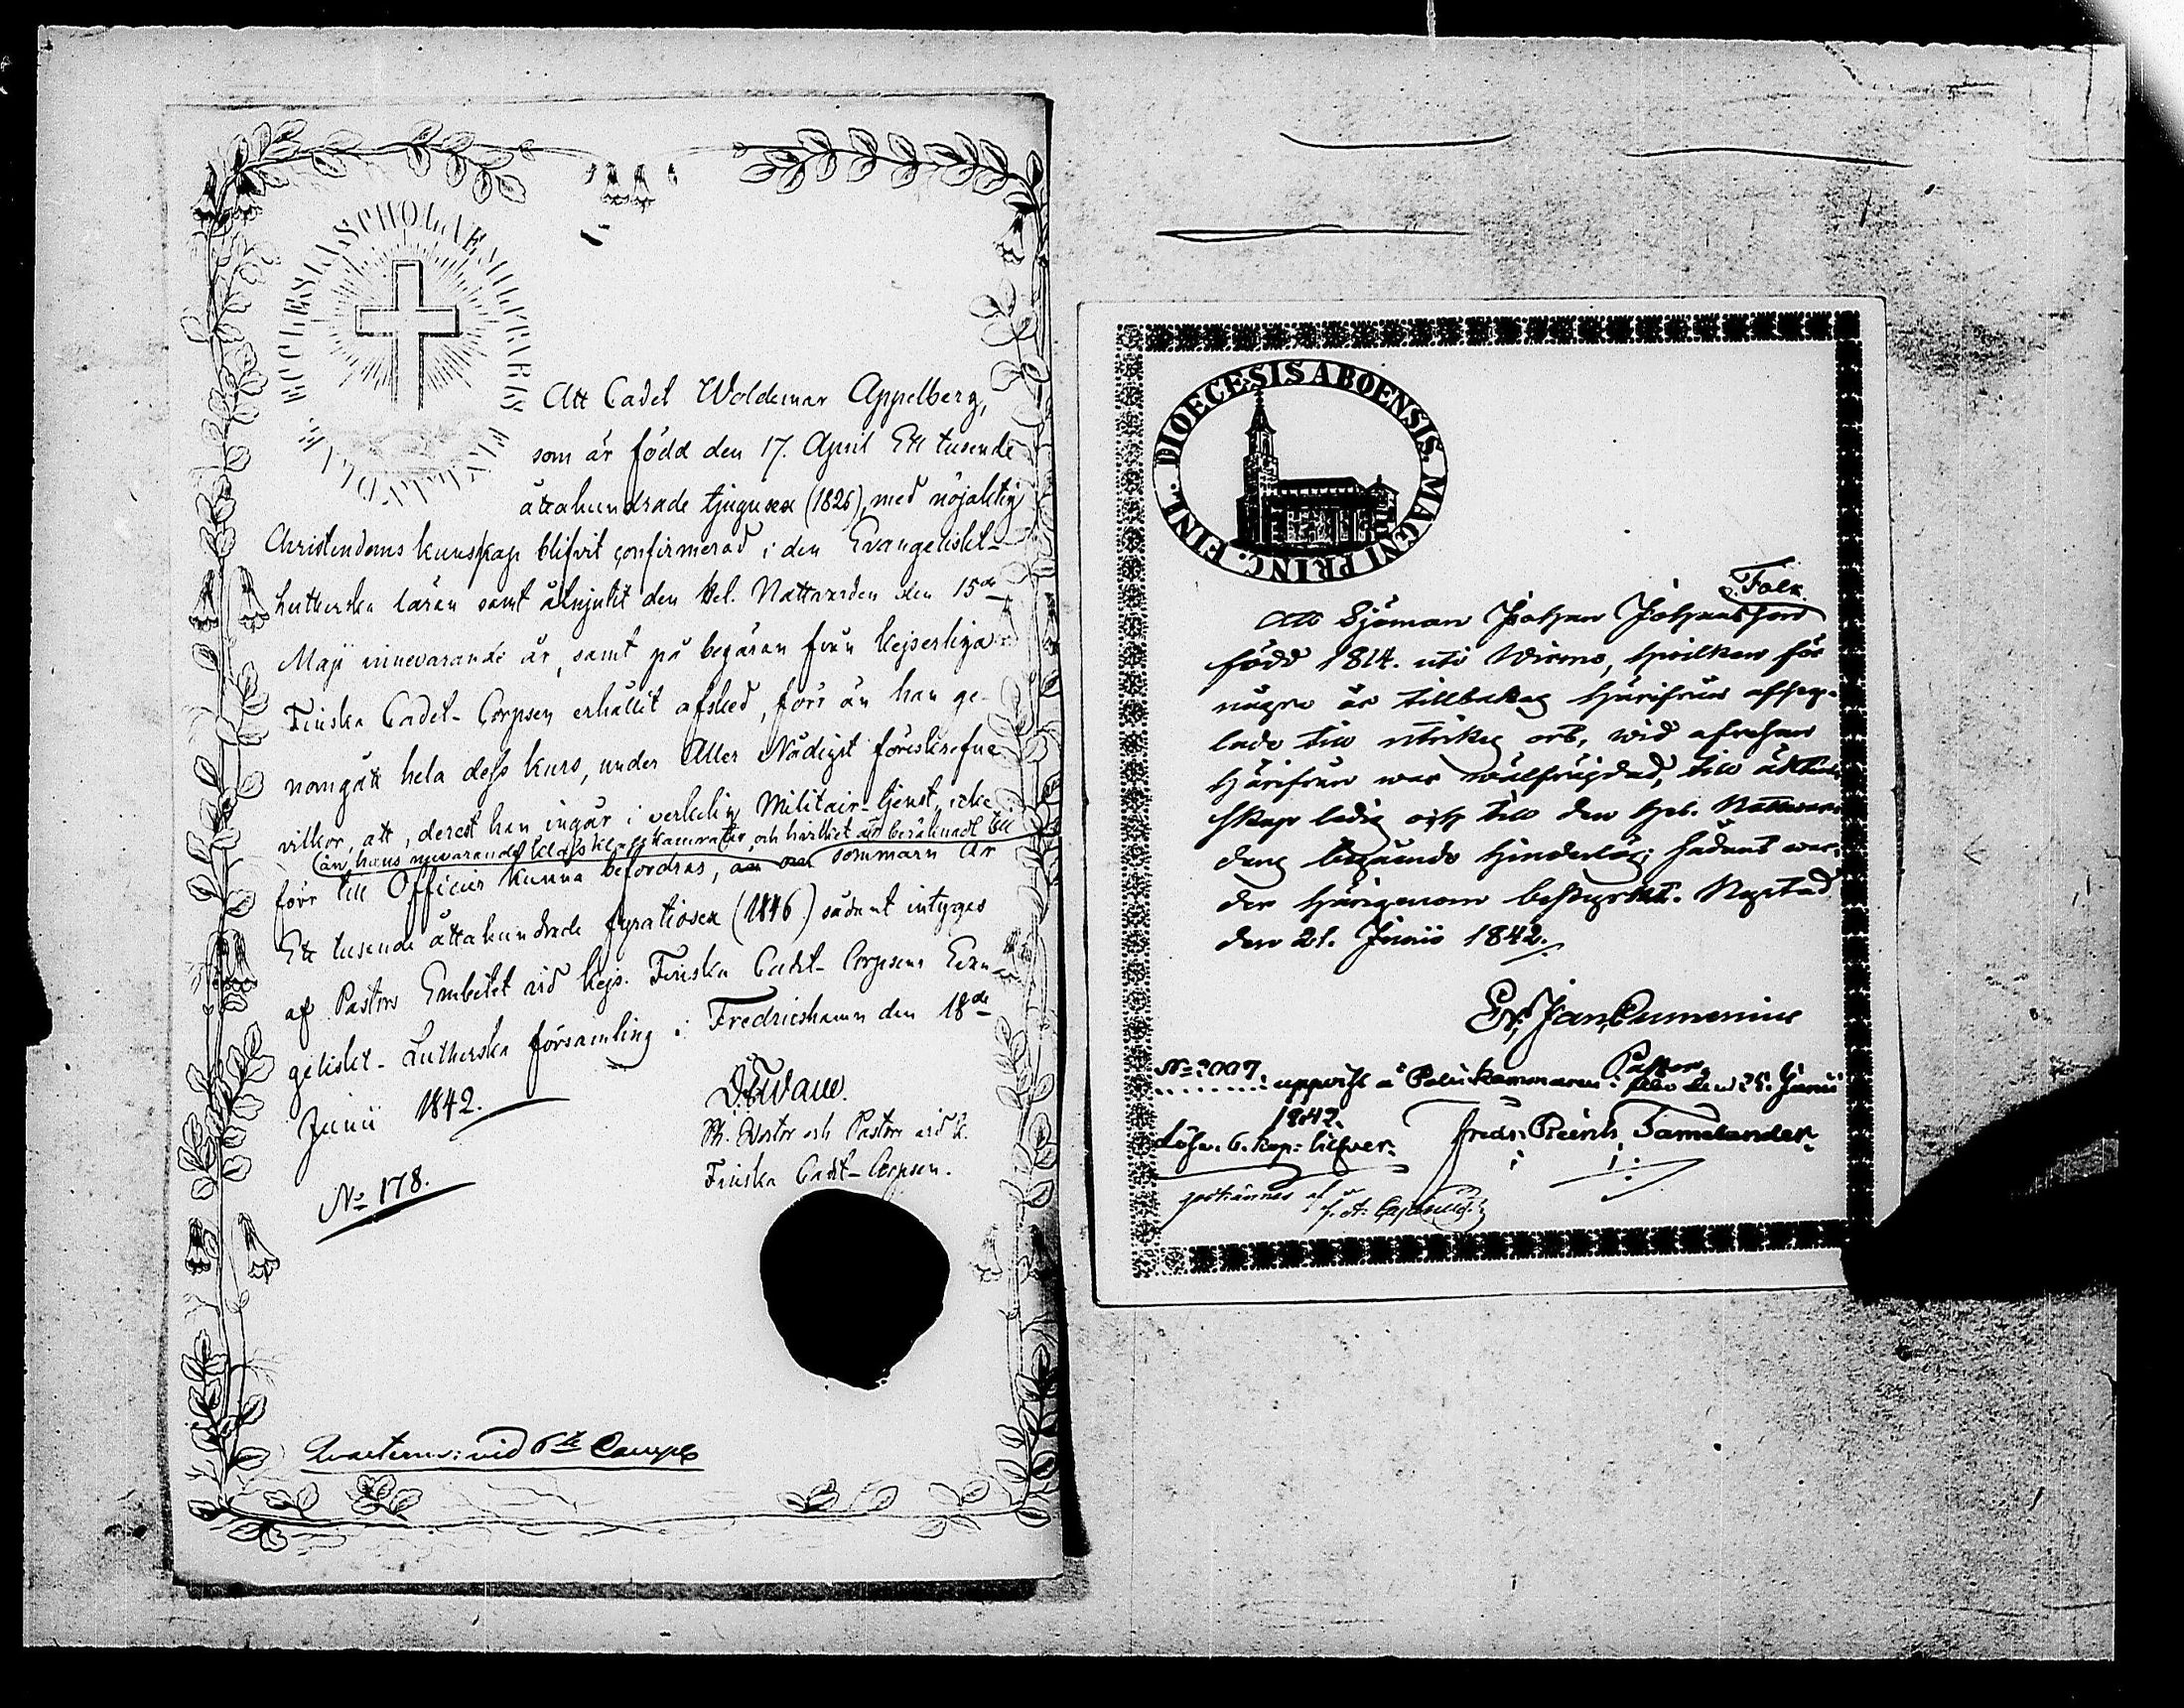 ECCLESIA SCHOLAE MILITARIS FINLANDIAE
Att Cadet Woldemar Appelberg,
som är född den 17. April Ett tusende
åttahundrade tjugusex (1826), med nöjaktig
Christendoms kunskap blifvit confirmerad i den Evangeliskt-
Lutherska läran samt åtnjutit den Hel. Nattvarden den 15de
Maji innevarande år, samt på begäran från Kejserliga
Finska Cadet-Corpsen erhållit afsked, förr än han ge-
nomgått hela dess kurs, under Aller Nådigst föreskrefne
vilkor, att, derest han ingår i verkelig Militair-tjenst, icke
(än hans nuvarande klasskamrater, och hvilket är beräknadt till
förr till Officier kunna befordras, sommarn år
Ett tusende åttahundrade fyratiosex (1846) sådant intygas
af Pastors Embetet vid Kejs. Finska Cadet-Corpsens Evan-
geliskt-Lutherska församling i Fredricshamn den 18de
Junii 1842.
Ph. Doctor och Pastor vid K.
Finska Cadet-Corpsen.
No 178.
vid 6te Comp.
DIOECESIS ABOENSIS. MAGNI PRINC. FINL.
Falk.
Att Sjöman Johan Johansson
född 1814. uti Wirmo, hvilken för
några år tillbaka härifrån afseg-
lade till utrikes ort, wid afresan
härifrån war wälfrägdad, till äkten-
skap ledig och till den hel. Nattwar-
dens begående hinderlös; sådant war-
der härigenom bestyrkt. Nystad
den 21. Junii 1842.
Pastor.
No 2007. uppvist å Poliskammaren i Åbo den 25. Junii
1842.
Lösen 6. kop: silfver.
Fredr. Reinh. Tamelander.